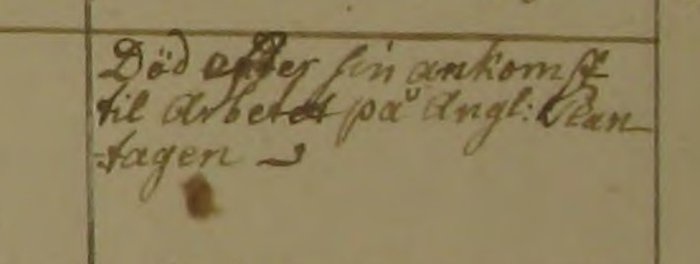 Död efter sin ankomst
til Arbetet på Angl: Plan-
tagen